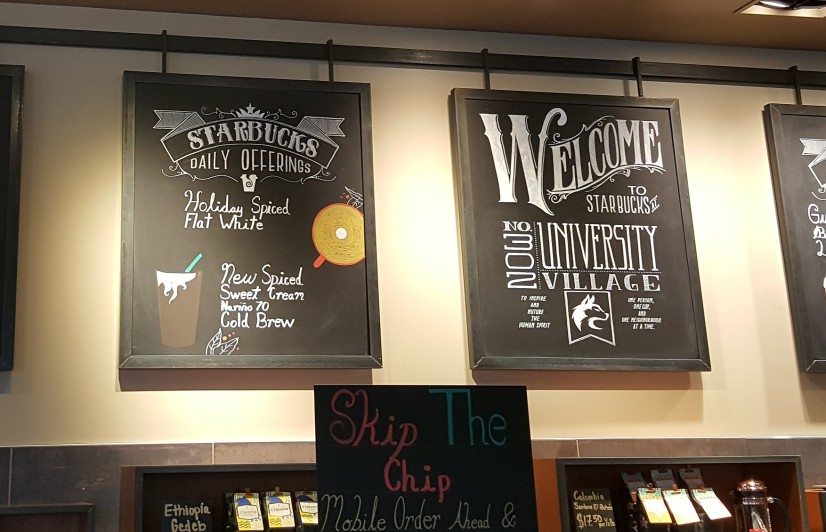 STARBUCKS
DAILY OFFERINGS
Holiday Spiced
Flat White
New Spiced
Sweet Cream
Nariño 70
Cold Brew
WELCOME
TO
STARBUCKS
NO. 302
UNIVERSITY
VILLAGE
TO INSPIRE
AND
NUTURE
THE
HUMAN SPIRIT
ONE PERSON,
ONE CUP,
AND
ONE NEIGHBORHOOD
AT A TIME.
Skip The
Chip
Mobile Order Ahead &
Ethiopia
Gedeb
Colombia
$17.50